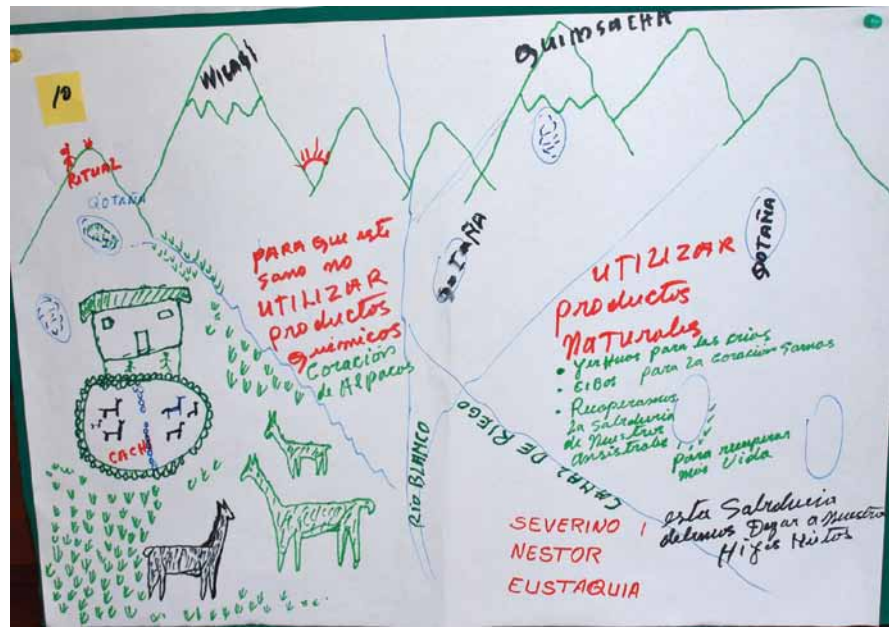 10
WILAQI
QUIMSACHA
RITUAL
QOTAÑA
QOTAÑA
QOTAÑA
PARA que este
sano no
UTILIZAR
productos
químicos
Coración
de Alpacas
UTILIZAR
productos
Naturales
• Yerbuas para las crias
• CIBOS para la coración Sarnas
• Recoperamos
la Sabiduria
de Nuestros
Ansistrabe
para recuperar
más vida
CACH
RIO BLANCO
CANAL DE RIEGO
SEVERINO
NESTOR
EUSTAQUIA
esta Sabiduria
debemos Dejar a Nuestro
Hijos Nietos